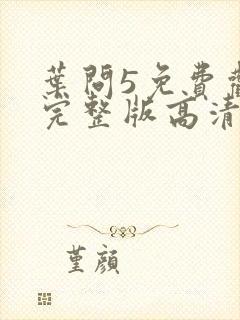 葉問5免費觀
完整版高清
堇顏